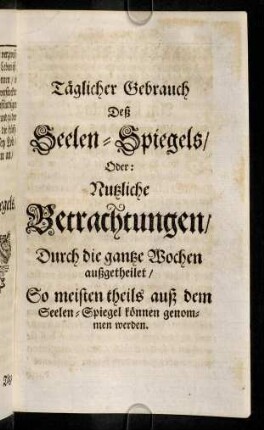 Täglicher Gebrauch
Deß
Seelen-Spiegels/
Oder:
Nutzliche
Betrachtungen/
Durch die gantze Wochen
außgetheilet/
So meisten theils auß dem
Seelen-Spiegel können genom-
men werden.